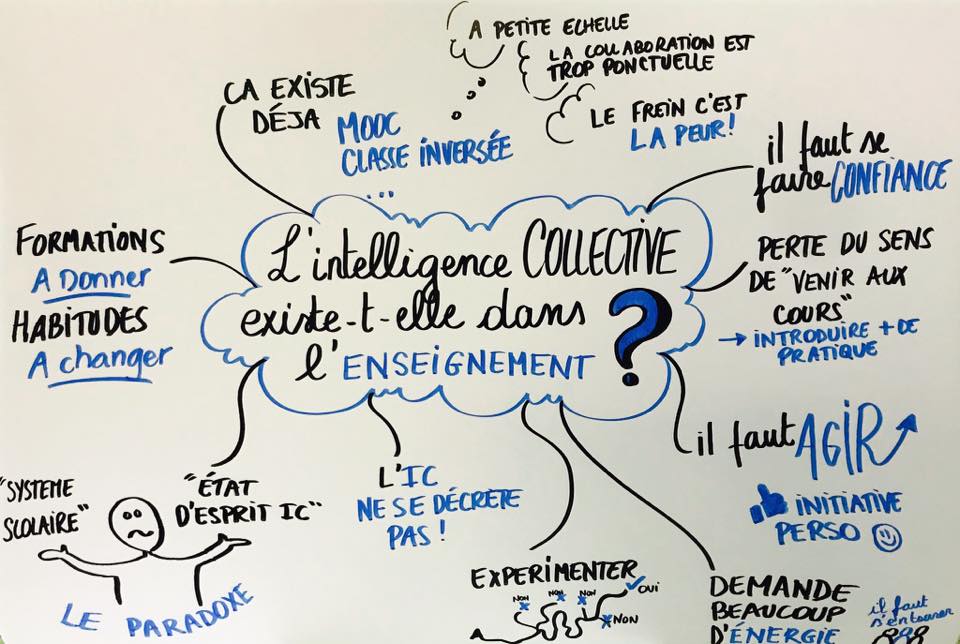 A PETITE ECHELLE
LA COLLABORATION EST
TROP PONCTUELLE
LE FREIN C'EST
LA PEUR!
CA EXISTE
DÉJA
MOOC
CLASSE INVERSÉE
...
il faut se
faire CONFIANCE
L'intelligence COLLECTIVE
existe-t-elle dans
l'ENSEIGNEMENT ?
FORMATIONS
A Donner
HABITUDES
A changer
PERTE DU SENS
DE "VENIR AUX
COURS"
→ INTRODUIRE + DE
PRATIQUE
il faut AGIR
INITIATIVE
PERSO
"SYSTEME
SCOLAIRE"
"ÉTAT
D'ESPRIT IC"
LE PARADOXE
L'IC
NE SE DÉCRÈTE
PAS !
EXPERIMENTER
NON
NON
NON
OUI
NON
DEMANDE
BEAUCOUP
D'ÉNERGIE
il faut
s'entourer